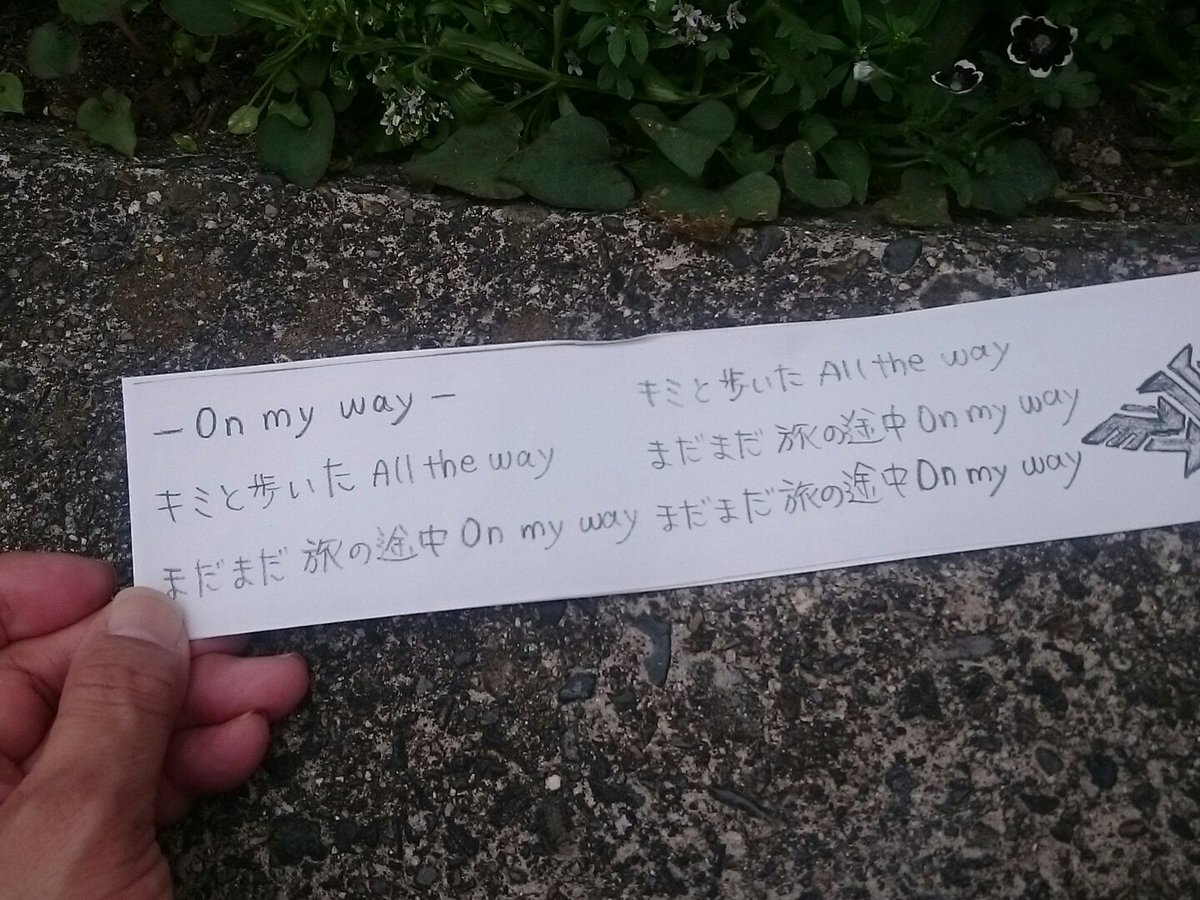 －On my way－
キミと歩いた All the way
まだまだ 旅の途中 On my way
キミと歩いた All the way
まだまだ 旅の途中 On my way
まだまだ 旅の途中 On my way